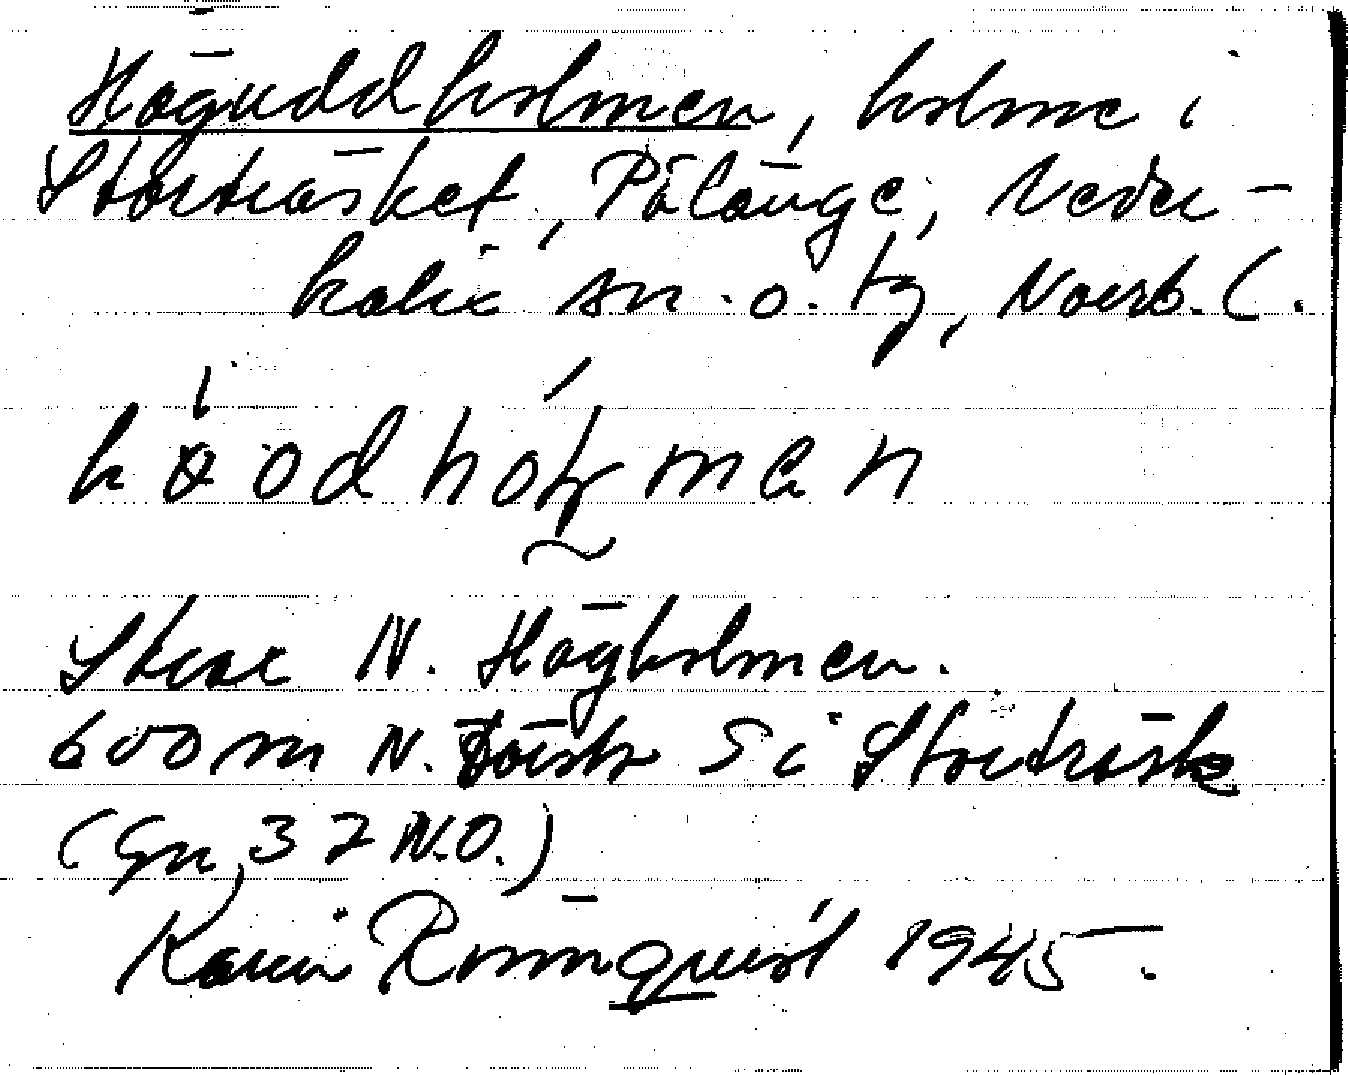 Höguddholmen, holme i
Storträsket, Pålänge, Neder-
kalix sn. o. tg, Norrb. l.
Skär N. Högholmen.
600 m N. S i Storträsk
(Gn, 37 N.O.)
Karin Rönnqvist 1945.